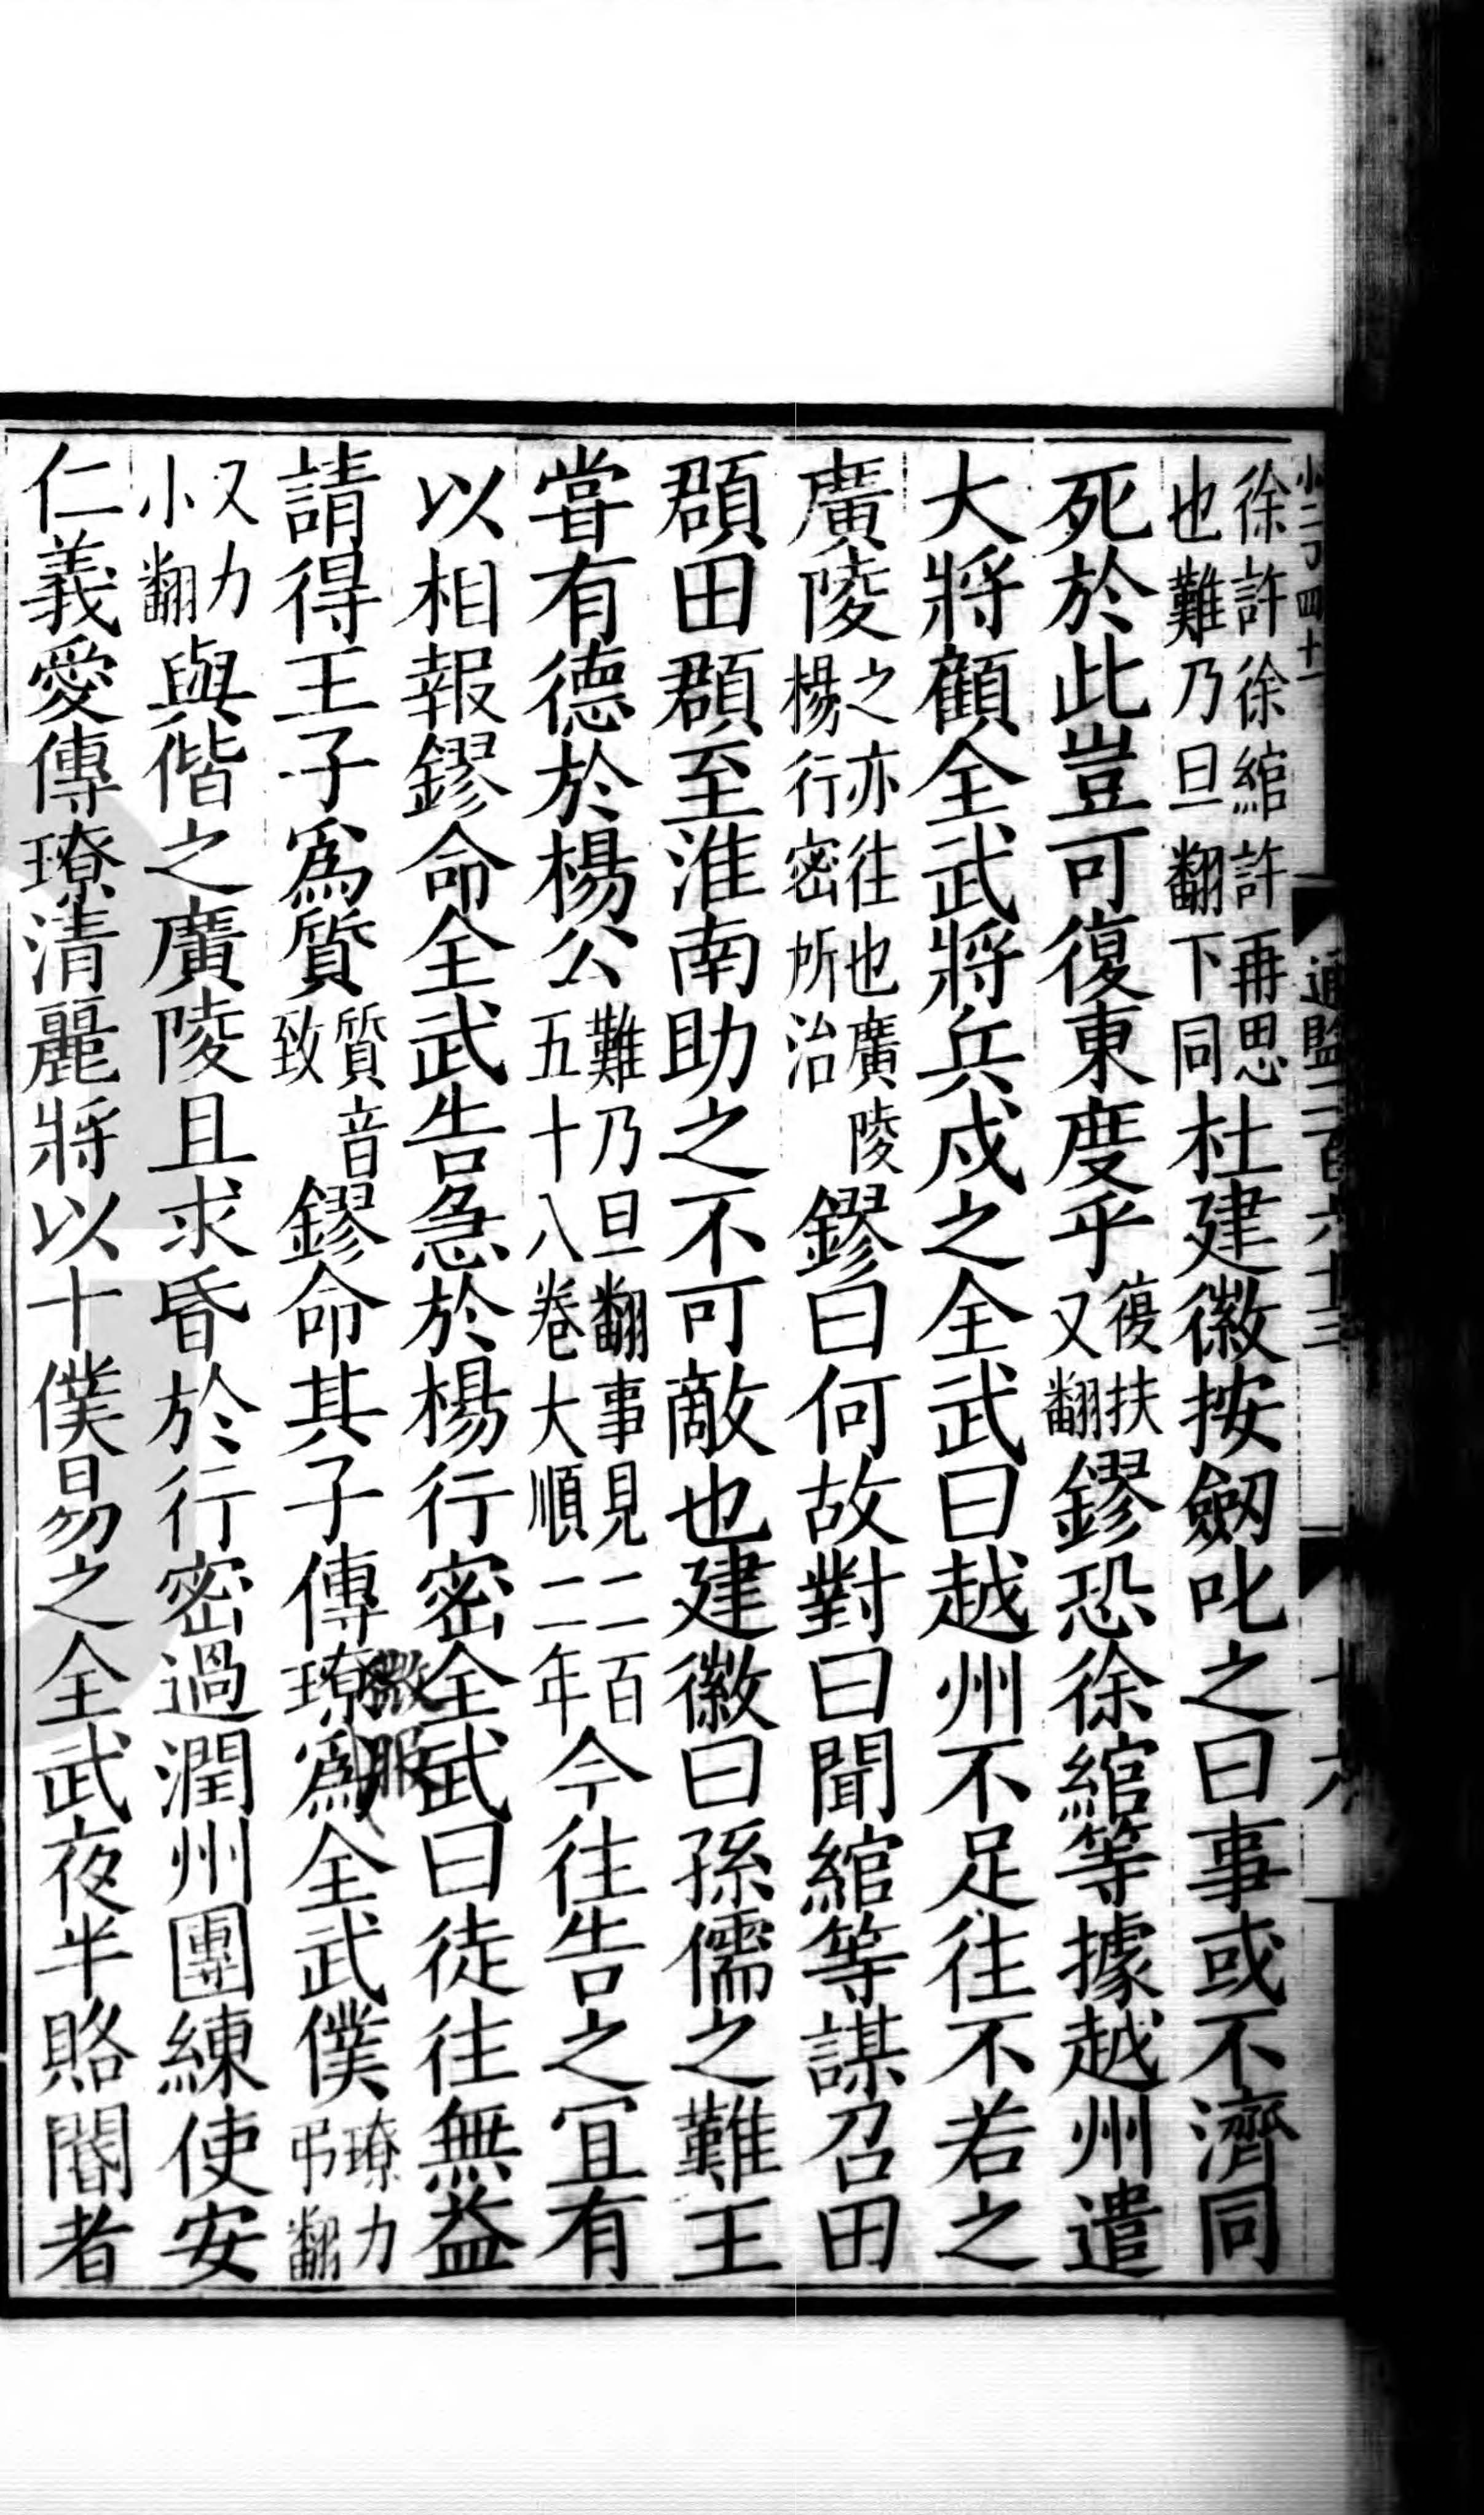 徐許徐綰許再思也難乃旦翻下同杜建徽按劒叱之曰事或不濟同
死於此豈可復東度乎復扶又翻鏐恐徐綰等據越州遣
大將顧全武將兵戍之全武曰越州不足往不若之
廣陵之亦往也廣陵楊行密所治鏐曰何故對曰聞綰等謀召田
頵田頵至淮南助之不可敵也建徽曰孫儒之難王
嘗有德於楊公難乃旦翻事見二百五十八卷大順二年今往告之宜有
以相報鏐命全武告急於楊行密全武曰徒往無益
請得王子爲質質音致鏐命其子傳璙爲全武僕璙力弔翻
微服
又力小翻與偕之廣陵且求昏於行密過潤州團練使安
仁義愛傳璙清麗將以十僕易之全武夜半賂閽者